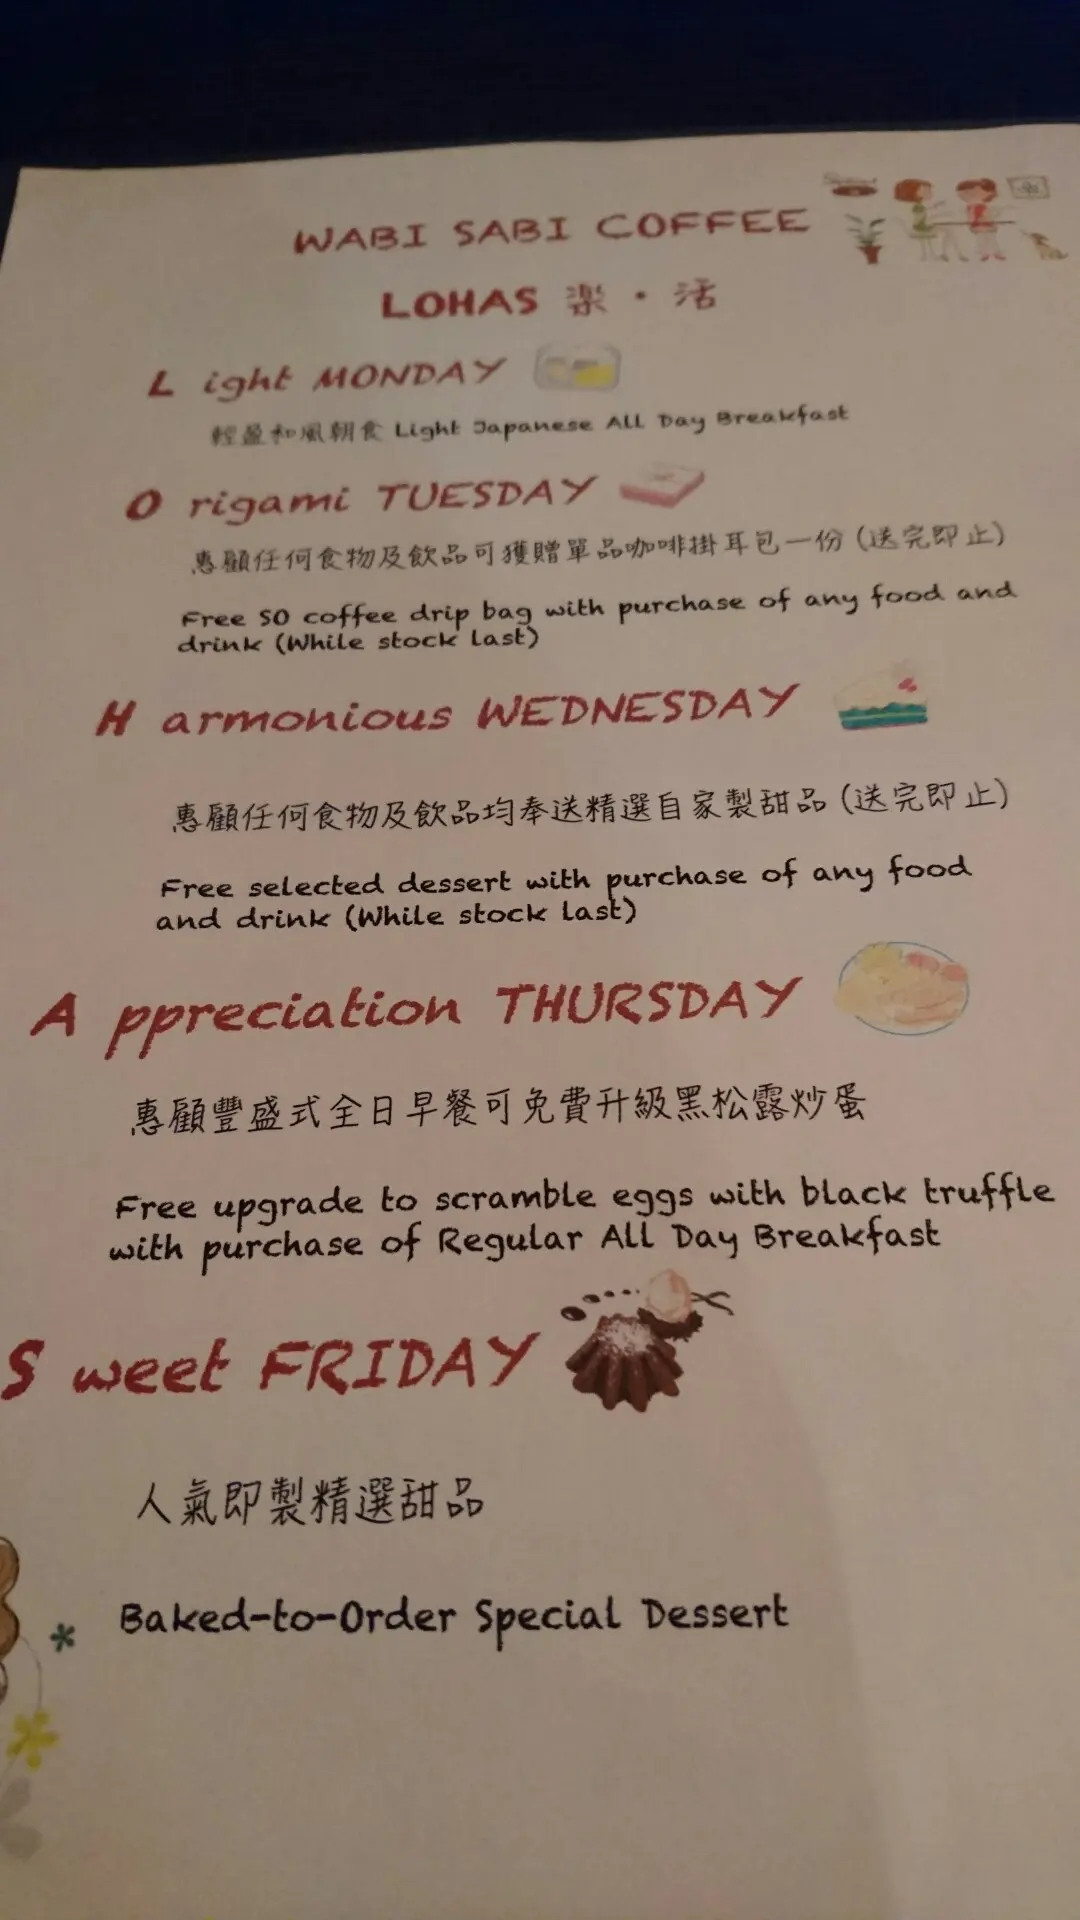 WABI SABI COFFEE
LOHAS 楽・活
L ight MONDAY
輕盈和風朝食 Light Japanese All Day Breakfast
O rigami TUESDAY
惠顧任何食物及飲品可獲贈單品咖啡掛耳包一份 (送完即止)
Free SO coffee drip bag with purchase of any food and
drink (While stock last)
H armonious WEDNESDAY
惠顧任何食物及飲品均奉送精選自家製甜品 (送完即止)
Free selected dessert with purchase of any food
and drink (While stock last)
A ppreciation THURSDAY
惠顧豐盛式全日早餐可免費升級黑松露炒蛋
Free upgrade to scramble eggs with black truffle
with purchase of Regular All Day Breakfast
S weet FRIDAY
人氣即製精選甜品
Baked-to-Order Special Dessert